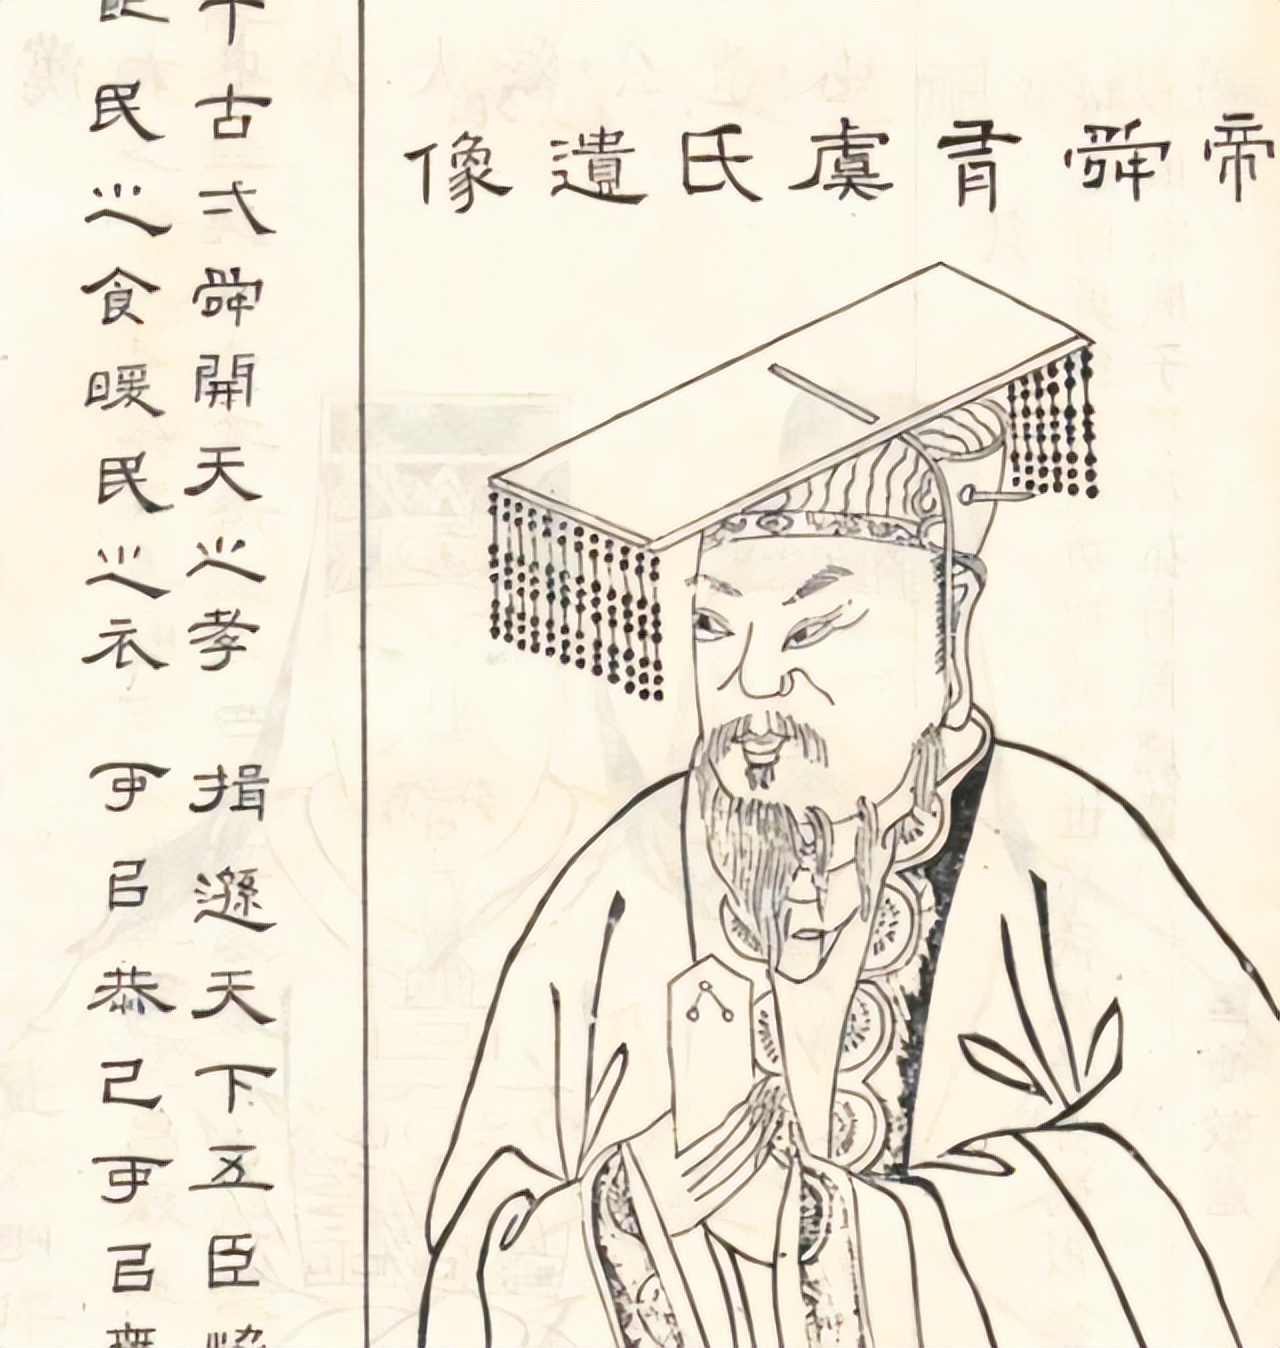 帝舜有虞氏遺像
古弌舜開天之孝 揖遜天下五臣
民之食暖民之衣 㠯恭己㠯